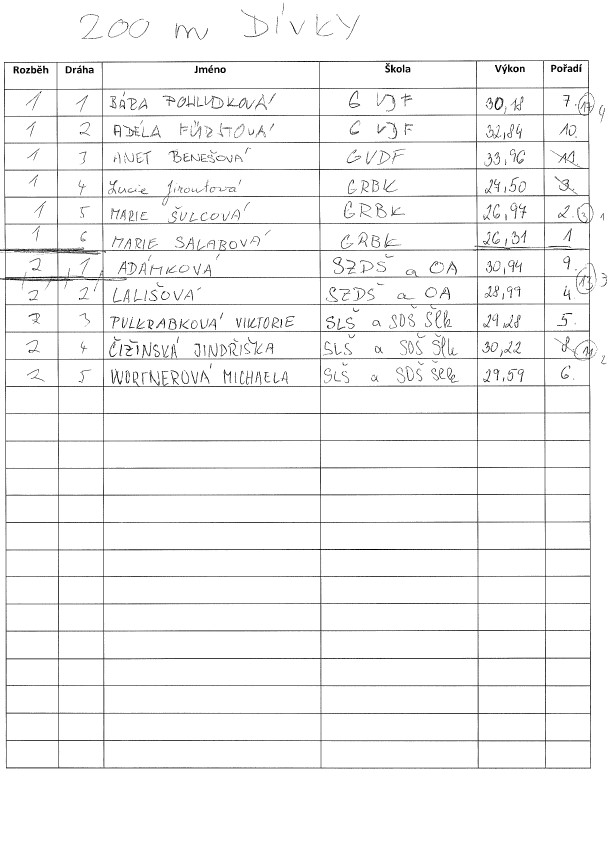 200 m DÍVKY
Rozběh Dráha Jméno Škola Výkon Pořadí
1 1 BÁRA POHLUDKOVÁ G VJF 30,18 7. 17 4
1 2 ADÉLA FÜRSTOVÁ G VJF 32,84 10.
1 3 ANET BENEŠOVÁ GVDF 33,96 11.
1 4 Lucie Jiroutová GRBK 27,50 3.
1 5 MARIE ŠULCOVÁ GRBK 26,97 2. 3 1
1 6 MARIE SALABOVÁ GRBK 26,31 1
2 1 ADÁMKOVÁ SZDŠ a OA 30,94 9.
13 3
2 2 LALIŠOVÁ SZDŠ a OA 28,99 4
2 3 PULKRABKOVÁ VIKTORIE SLŠ a SOŠ Šlk 29,28 5.
2 4 ČIŽINSKÁ JINDŘIŠKA SLŠ a SOŠ Šlk 30,22 8 11 2
2 5 WORTNEROVÁ MICHAELA SLŠ a SOŠ Šlk 29,59 6.